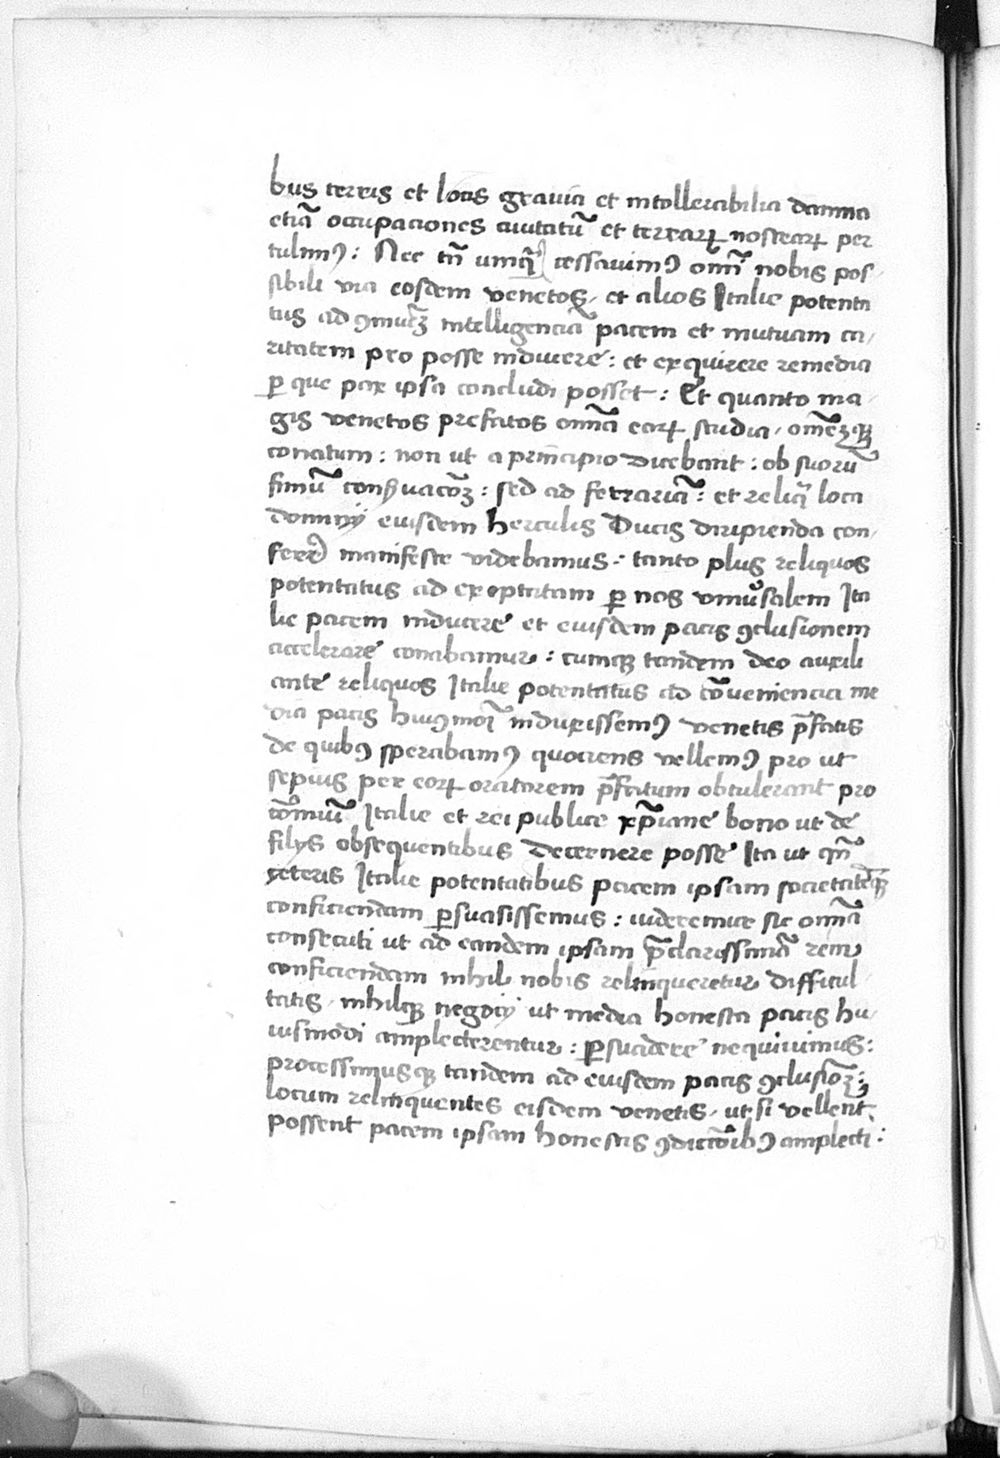 bus terris et locis gravia et intollerabilia damna
etiã occupaciones civitatũ et terrarꝝ nostrarꝝ per
tulimꝰ : Nec tñ umqȝ cessavimꝰ omi nobis pos/
sibili via eosdem venetos / et alios Italie potenta
tus ad ꝯmuēȝ intelligenciã pacem et mutuam ca/
ritatem pro posse inducere : et exquirere remedia
ꝑ que pax ipsa concludi posset : Et quanto ma/
gis venetos prefatos omĩa eorꝝ studia / omēȝqȝ
conatum : non ut a principio dicebant : ob suorũ
finiũ conẜvacōȝ : sed ad ferrariã : et reliqã loca
dominij eiusdem Herculis Ducis diripienda con/
ferr̃ manifeste videbamus : tanto plus reliquos
potentatus ad exoptatam ꝑ nos vniũsalem Ita
lie pacem inducere et eiusdem pacis ꝯclusionem
accelerare conabamur : cumqȝ tandem deo auxili
ante reliquos Italie potentatus ad cõveniencia me
dia pacis huiꝰmõi induxissemꝰ venetis p̃fatis
de quibꝰ sperabamꝰ quociens vellemꝰ pro ut
sepius per eorꝝ oratorem p̃fatum obtulerant pro
cõmuni Italie et rei publice xp̃iane bono ut de
filijs obsequentibus decernere posse Ita ut qm̃
ceteris Italie potentatibus pacem ipsam societatēqȝ
conficiendam ꝑsuasissemus : videremur sic omĩa
consecuti ut ad eandem ipsam p̃clarissimã rem
conficiendam nihil nobis relinqueretur difficul/
tatis / nihilqȝ negocij ut media honesta pacis hu/
iusmodi amplecterentur : ꝑsuadere nequivimus :
processimusqȝ tandem ad eiusdem pacis ꝯclusiõȝ :
locum relinquentes eisdem venetis / ut si vellent
possent pacem ipsam honestis ꝯdicōibꝰ amplecti :